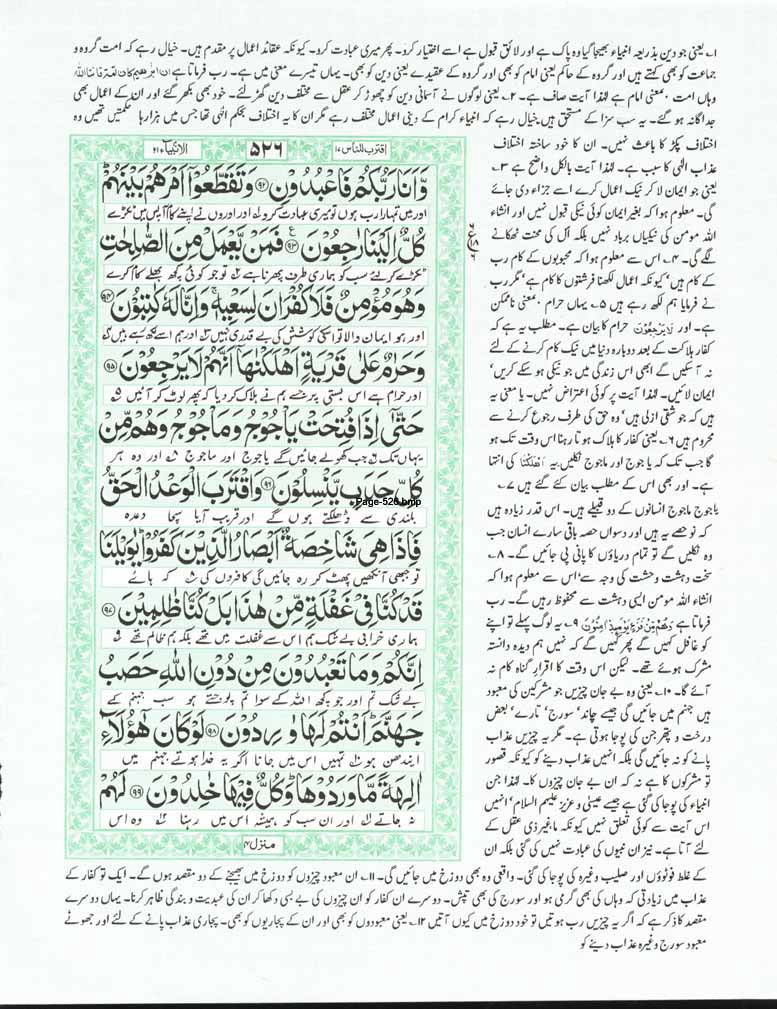 ۱۔ یعنی جو دین بذریعہ انبیاء بھیجا گیا وہ پاک ہے اور لائق قبول ہے اسے اختیار کرو۔ پھر میری عبادت کرو۔ کیونکہ عقائد اعمال پر مقدم ہیں۔ خیال رہے کہ امت گروہ و
جماعت کو بھی کہتے ہیں اور گروہ کے حاکم یعنی امام کو بھی اور گروہ کے عقیدے یعنی دین کو بھی۔ یہاں تیسرے معنی میں ہے۔ رب فرماتا ہے ان ابرٰھیم کان امۃ قانتا للہ
وہاں امت ،معنی امام ہے لہٰذا آیت صاف ہے۔ ۲۔ یعنی لوگوں نے آسمانی دین کو چھوڑ کر عقل سے مختلف دین گھڑ لئے۔ خود بھی بکھر گئے اور ان کے اعمال بھی
جداگانہ ہو گئے۔ یہ سب سزا کے مستحق ہیں۔ خیال رہے کہ انبیاء کرام کے دینی اعمال مختلف رہے مگر ان کا یہ اختلاف بحکم الٰہی تھا جس میں ہزارہا حکمتیں تھیں وہ
اختلاف پکڑ کا باعث نہیں۔ ان کا خود ساختہ اختلاف
عذاب الٰہی کا سبب ہے۔ لہٰذا آیت بالکل واضح ہے ۳۔
یعنی جو ایمان لا کر نیک اعمال کرے اسے جزاء دی جائے
گی۔ معلوم ہوا کہ بغیر ایمان کوئی نیکی قبول نہیں اور انشاء
اللہ مومن کی نیکیاں برباد نہیں بلکہ اس کی محنت ٹھکانے
لگے گی۔ ۴۔ اس سے معلوم ہوا کہ محبوبوں کے کام رب
کے کام ہیں' کیونکہ اعمال لکھنا فرشتوں کا کام ہے' مگر رب
نے فرمایا ہم لکھ رہے ہیں ۵۔ یہاں حرام ،معنی ناممکن
ہے۔ اور لَا یَرْجِعُوْنَ حرام کا بیان ہے۔ مطلب یہ ہے کہ
کفار ہلاکت کے بعد دوبارہ دنیا میں نیک کام کرنے کے لئے
نہ آ سکیں گے ابھی اس زندگی میں جو نیکی ہو سکے کریں'
ایمان لائیں۔ لہٰذا آیت پر کوئی اعتراض نہیں۔ یا معنی یہ
ہیں کہ جو شقی ازلی ہیں' وہ حق کی طرف رجوع کرنے سے
محروم ہیں ۶۔ یعنی کفار کا ہلاک ہونا رہنا اس وقت تک ہو
گا جب تک کہ یاجوج اور ماجوج نکلیں یہ اَھْلَکْنٰا کی انتہا
ہے۔ اور بھی اس کے مطلب بیان کئے گئے ہیں ۷۔
یاجوج ماجوج انسانوں کے دو قبیلے ہیں۔ اس قدر زیادہ ہیں
کہ نو حصے یہ ہیں اور دسواں حصہ باقی سارے انسان جب
وہ نکلیں گے تو تمام دریاؤں کا پانی پی جائیں گے۔ ۸۔
سخت دہشت و حشت کی وجہ سے' اس سے معلوم ہوا کہ
انشاء اللہ مومن ایسی دہشت سے محفوظ رہیں گے۔ رب
فرماتا ہے وَھُمْ مِّنْ فَزَعٍ یَّوْمَئِذٍ اٰمِنُوْنَ ۹۔ یہ لوگ پہلے تو اپنے
کو غافل کہیں گے پھر کہیں گے کہ نہیں ہم دیدہ دانستہ
مشرک ہوئے تھے۔ لیکن اس وقت کا اقرار گناہ کام نہ
آئے گا۔ ۱۰۔ یعنی وہ بے جان چیزیں جو مشرکین کی معبود
ہیں جہنم میں جائیں گی جیسے چاند' سورج' تارے' بعض
درخت و پتھر جن کی پوجا ہوتی ہے۔ مگر یہ چیزیں عذاب
پانے کو نہ جائیں گی بلکہ انہیں عذاب دینے کو کیونکہ قصور
تو مشرکوں کا ہے نہ کہ ان بے جان چیزوں کا۔ لہٰذا جن
انبیاء کی پوجا کی گئی ہے جیسے عیسیٰ و عزیر علیہم السلام' انہیں
اس آیت سے کوئی تعلق نہیں کیونکہ ما غیر ذی عقل کے
لئے آتا ہے۔ نیز ان نبیوں کی عبادت نہیں کی گئی بلکہ ان
اقترب للناس ۱۷
۵۲۶
الانبیاء ۲۱
وَّاَنَا رَبُّكُمْ فَاعْبُدُوْنِ ﴿۹۲﴾ وَتَقَطَّعُوْۤا اَمْرَهُمْ بَيْنَهُمْ
اور میں تمہارا رب ہوں تو میری عبادت کرو اور اوروں نے اپنے کام آپس میں ٹکڑے
كُلٌّ اِلَيْنَا رٰجِعُوْنَ ﴿۹۳﴾ فَمَنْ يَّعْمَلْ مِنَ الصّٰلِحٰتِ
ٹکڑے کر لئے سب کو ہماری طرف پھرنا ہے تو جو کوئی کچھ بھلے کام کرے
وَهُوَ مُؤْمِنٌ فَلَا كُفْرَانَ لِسَعْيِهٖ وَاِنَّا لَهٗ كٰتِبُوْنَ ﴿۹۴﴾
اور ہو ایمان والا تو اسکی کوشش کی بے قدری نہیں اور ہم اسے لکھ رہے ہیں
وَحَرٰمٌ عَلٰى قَرْيَةٍ اَهْلَكْنٰهَاۤ اَنَّهُمْ لَا يَرْجِعُوْنَ ﴿۹۵﴾
اور حرام ہے اس بستی پر جسے ہم نے ہلاک کر دیا کہ پھر لوٹ کر آئیں
حَتّٰۤى اِذَا فُتِحَتْ يَاْجُوْجُ وَمَاْجُوْجُ وَهُمْ مِّنْ
یہاں تک کہ جب کھولے جائیں گے یاجوج اور ماجوج اور وہ ہر
كُلِّ حَدَبٍ يَّنْسِلُوْنَ ﴿۹۶﴾ وَاقْتَرَبَ الْوَعْدُ الْحَقُّ
Page-526.bmp
بلندی سے ڈھلکتے ہوں گے اور قریب آیا سچا وعدہ
فَاِذَا هِيَ شَاخِصَةٌ اَبْصَارُ الَّذِيْنَ كَفَرُوْا يٰوَيْلَنَا
تو جبھی آنکھیں پھٹ کر رہ جائیں گی کافروں کی کہ ہائے
قَدْ كُنَّا فِيْ غَفْلَةٍ مِّنْ هٰذَا بَلْ كُنَّا ظٰلِمِيْنَ ﴿۹۷﴾
ہماری خرابی بے شک ہم اس سے غفلت میں تھے بلکہ ہم ظالم تھے
اِنَّكُمْ وَمَا تَعْبُدُوْنَ مِنْ دُوْنِ اللّٰهِ حَصَبُ
بے شک تم اور جو کچھ اللہ کے سوا تم پوجتے ہو سب جہنم کے
جَهَنَّمَ اَنْتُمْ لَهَا وٰرِدُوْنَ ﴿۹۸﴾ لَوْ كَانَ هٰۤؤُلَآءِ
ایندھن ہو تمہیں اس میں جانا اگر یہ خدا ہوتے جہنم میں
اٰلِهَةً مَّا وَرَدُوْهَا وَكُلٌّ فِيْهَا خٰلِدُوْنَ ﴿۹۹﴾ لَهُمْ
نہ جاتے اور ان سب کو ہمیشہ اس میں رہنا وہ اس
منزل ۴
کے غلط فوٹوؤں اور صلیب وغیرہ کی پوجا کی گئی۔ واقعی وہ بھی دوزخ میں جائیں گی۔ ۱۱۔ ان معبود چیزوں کو دوزخ میں بھیجنے کے دو مقصد ہوں گے۔ ایک تو کفار کے
عذاب میں زیادتی کہ وہاں کی بھی گرمی ہو اور سورج کی بھی تپش۔ دوسرے ان کفار کو ان چیزوں کی بے بسی دکھا کر ان کی عبدیت و بندگی ظاہر کرنا۔ یہاں دوسرے
مقصد کا ذکر ہے کہ اگر یہ چیزیں رب ہوتیں تو خود دوزخ میں کیوں آتیں ۱۲۔ یعنی معبودوں کو بھی اور ان کے پجاریوں کو بھی۔ پجاری عذاب پانے کے لئے اور جھوٹے
معبود سورج وغیرہ عذاب دینے کو